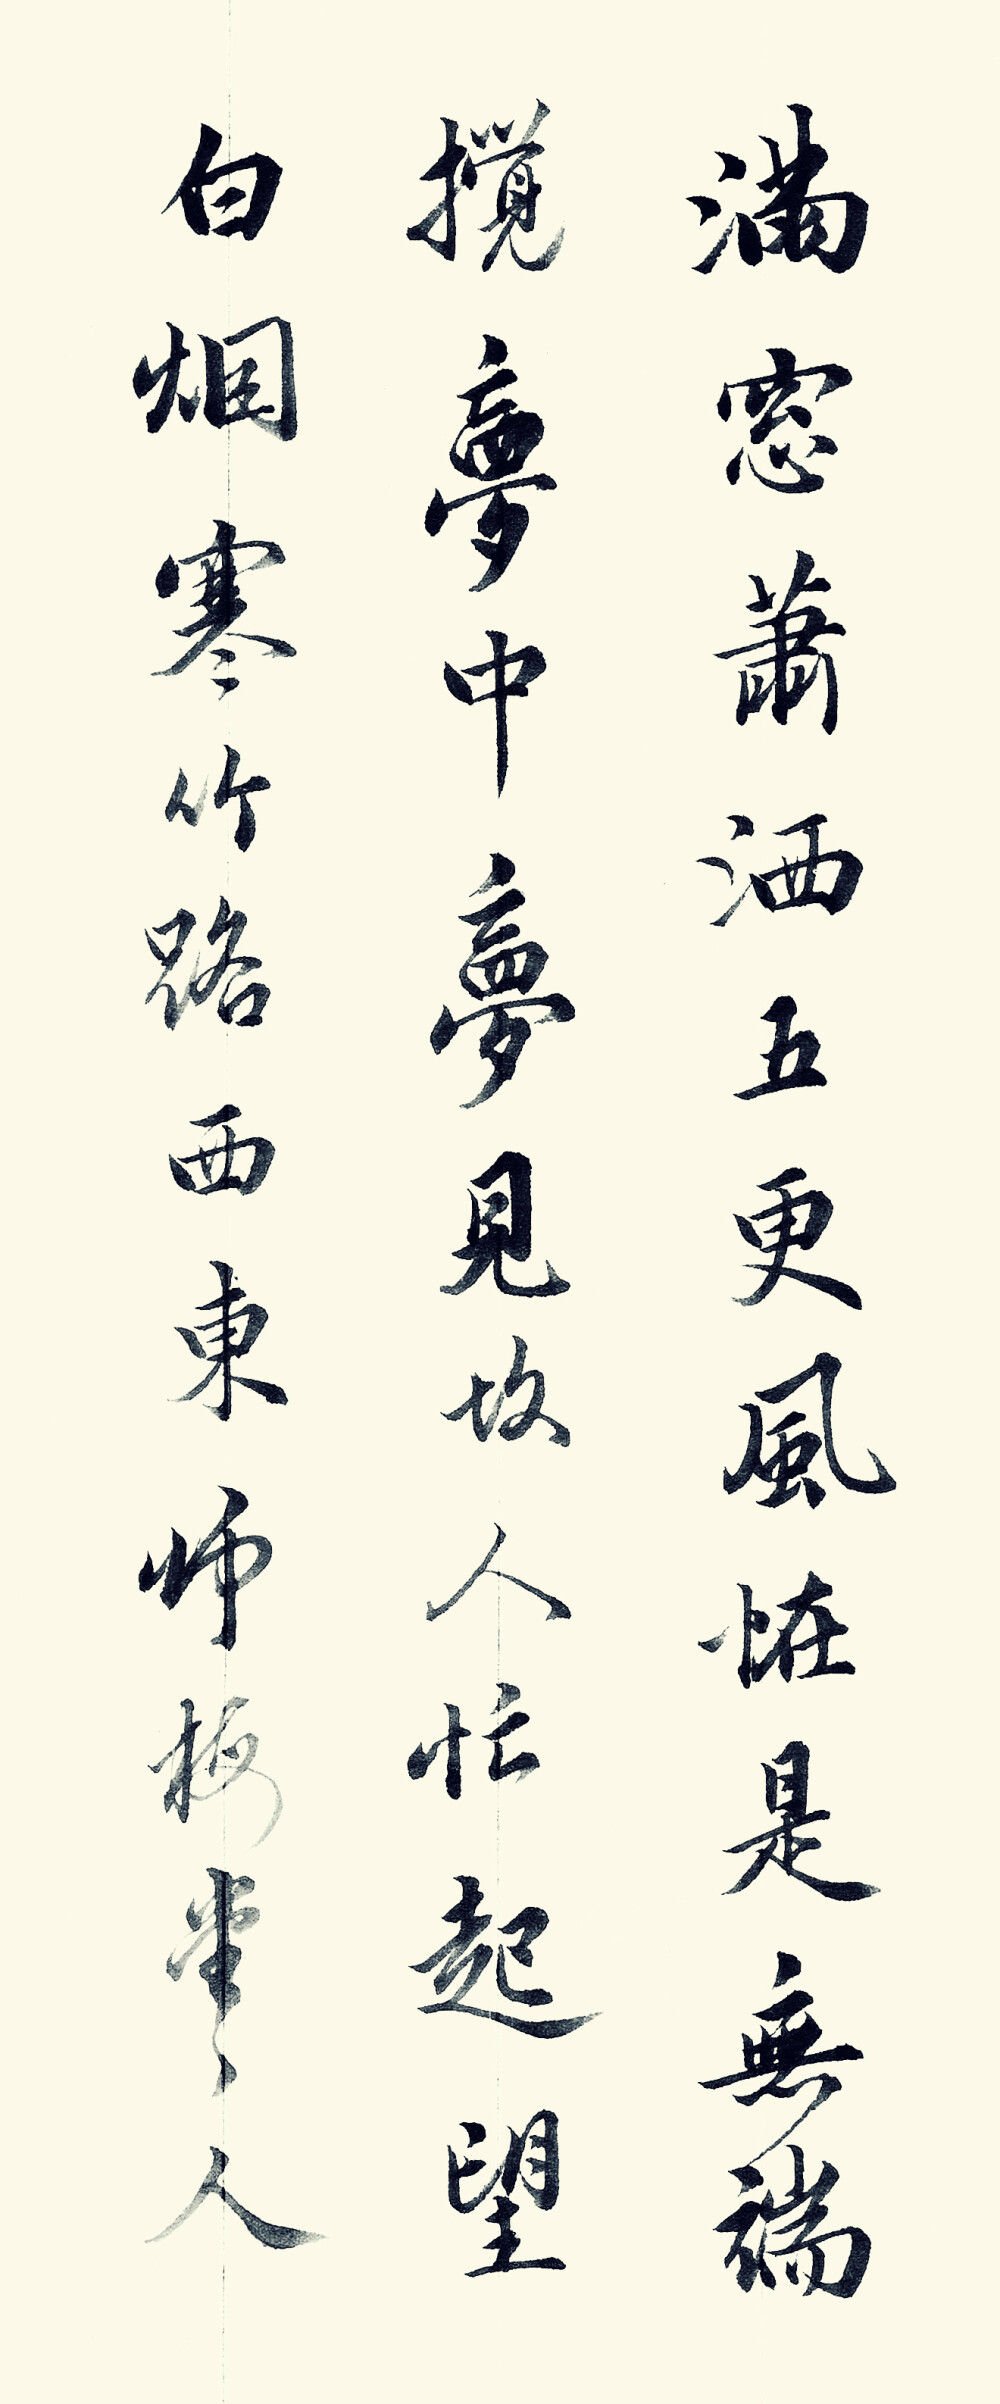 滿窓蕭洒五更風恠是無端
攪夢中夢見故人忙起望
白烟寒竹路西東师梅堂主人